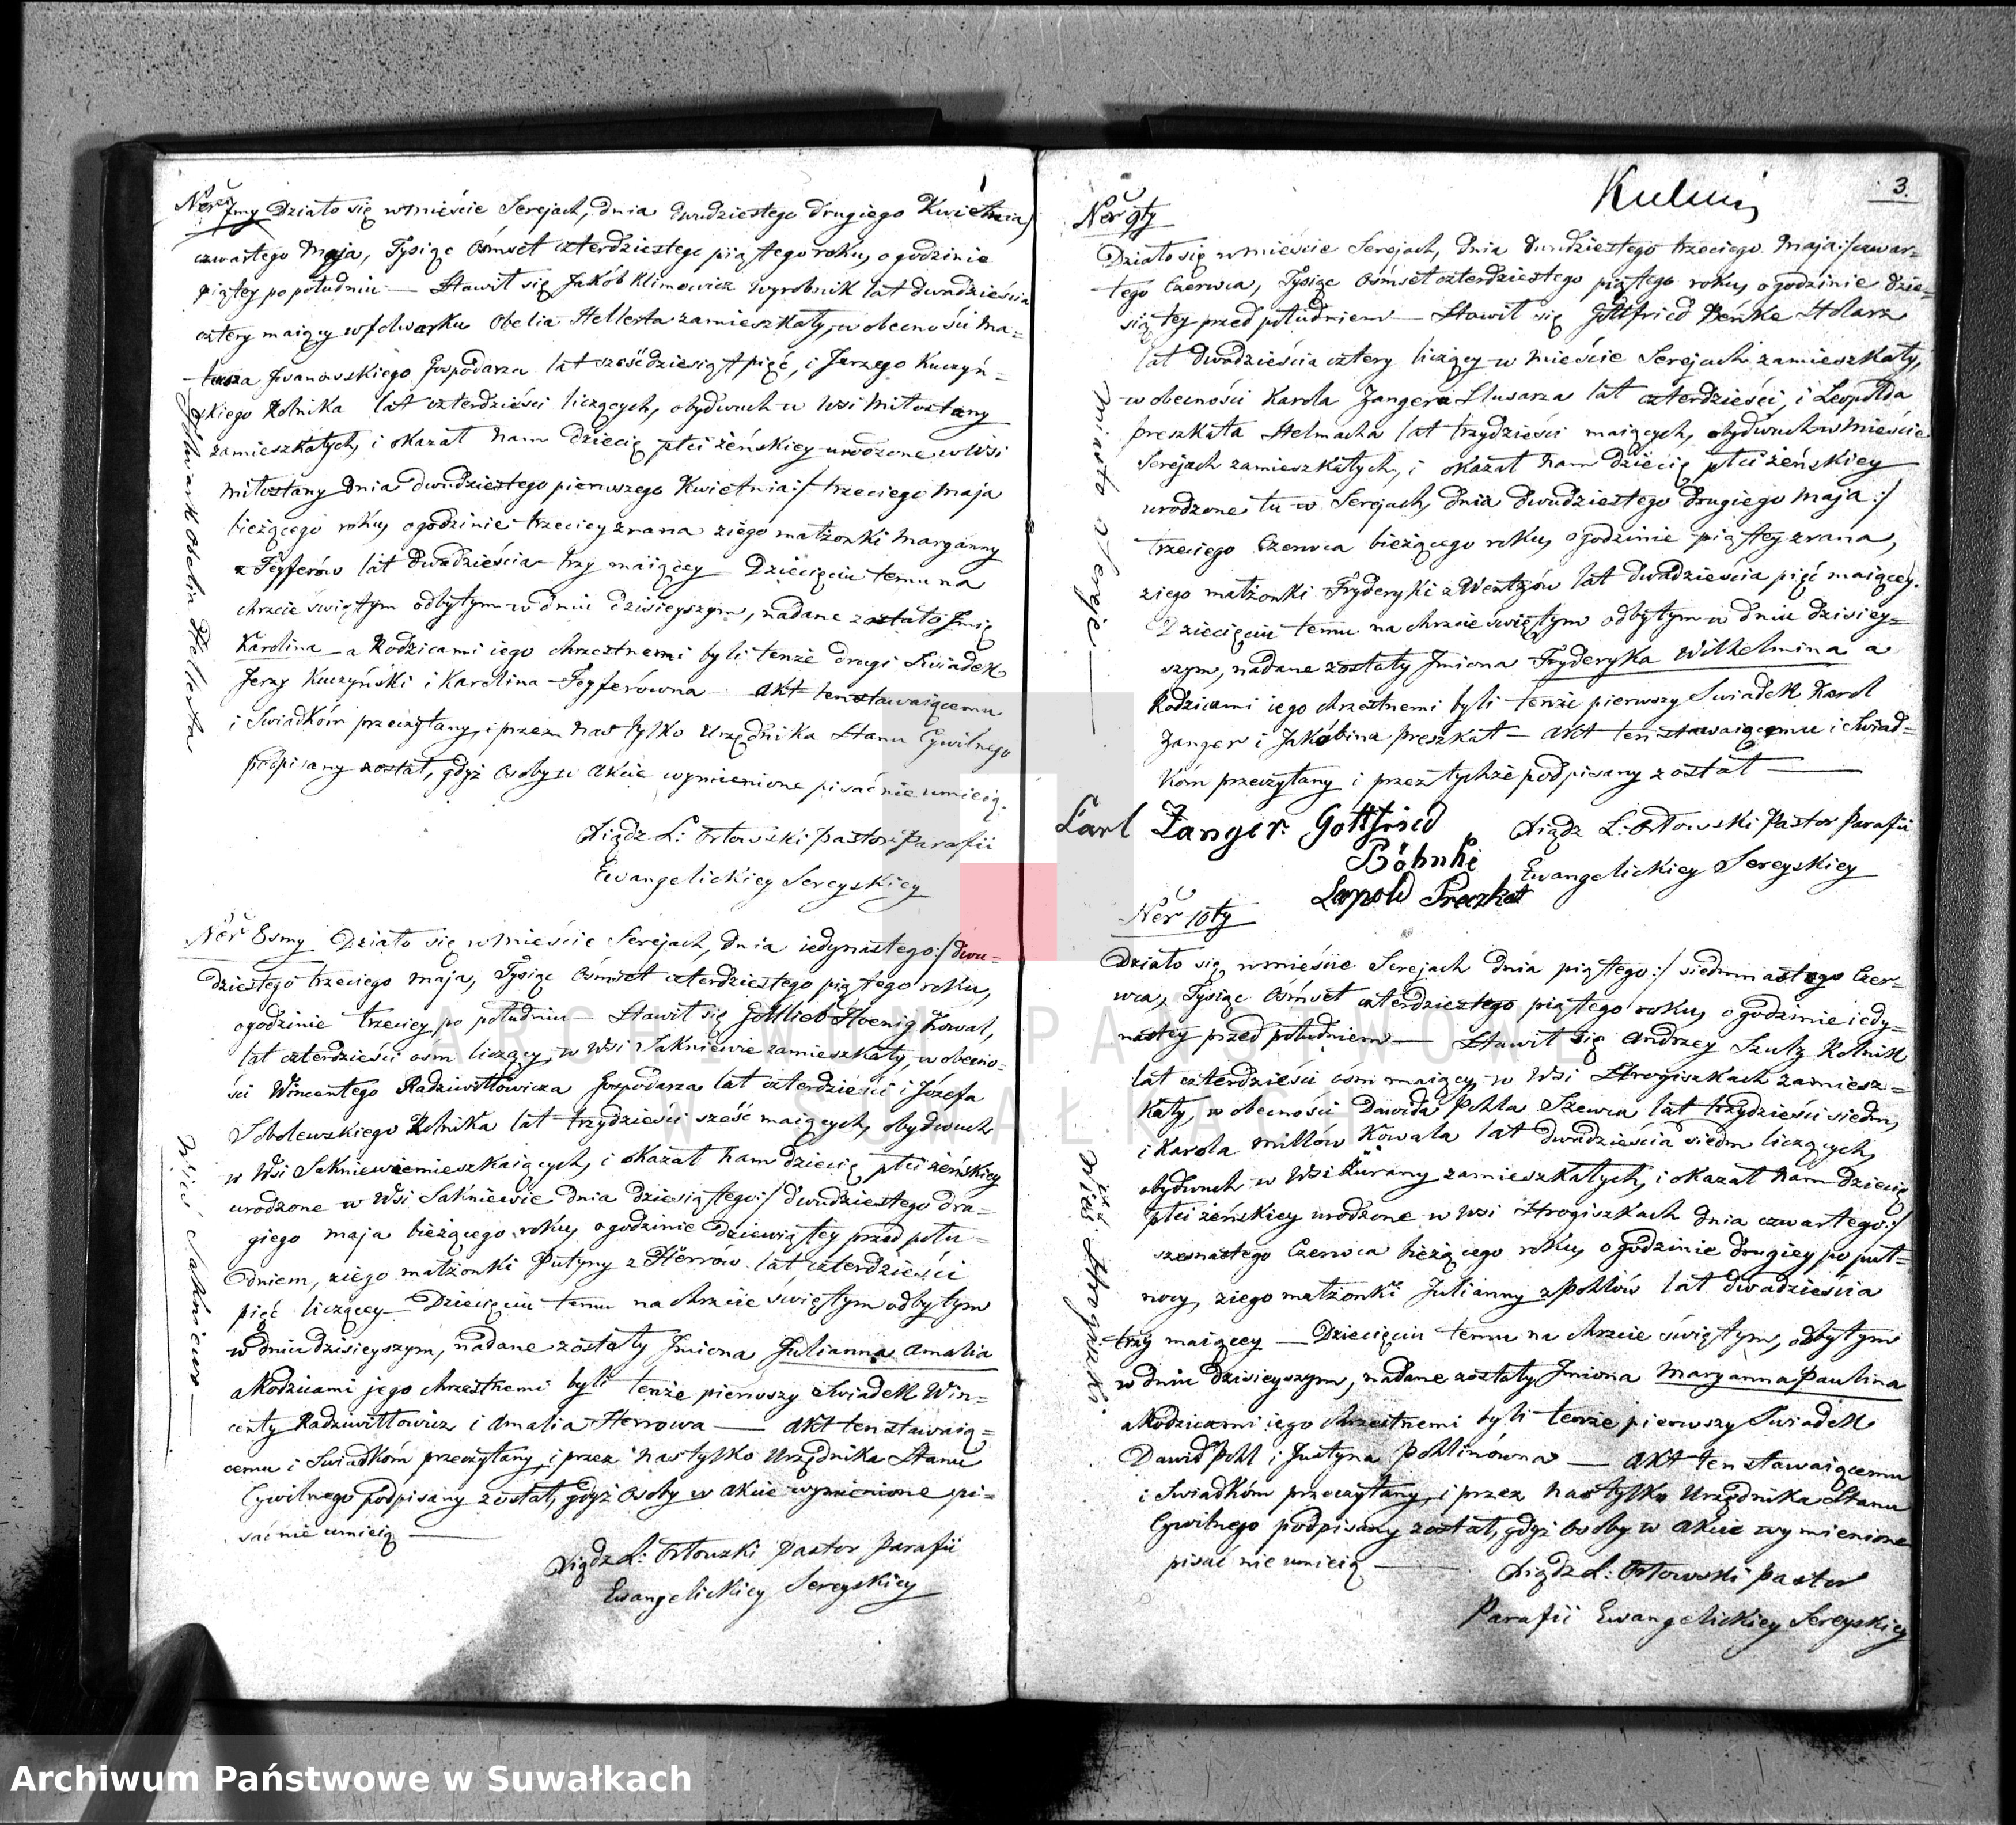 Ner 7my Działo się w mieście Serejach, dnia dwudziestego drugiego Kwietnia/
czwartego Maja, Tysiąc Ośmset czterdziestego piątego roku, o godzinie
piątey po południu — Stawił się Jakób Klimowicz wyrobnik lat dwadzieścia
cztery maiący w folwarku Obelia Hellerta zamieszkały, w obecności Ma-
teusza Iwanowskiego Gospodarza lat sześćdziesiąt pięć, i Jerzego Kuczyń-
skiego Rolnika lat czterdzieści liczących, obydwuch w Wsi Mitosztany
zamieszkałych, i okazał nam dziecię płci żeńskiey urodzone w Wsi
Mitosztany dnia dwudziestego pierwszego Kwietnia:/ trzeciego Maja
bieżącego roku, o godzinie trzeciey z rana z iego małżonki Maryanny
z Feyferów lat dwadzieścia trzy maiącey — Dziecięciu temu na
chrzcie świętym odbytym w dniu dzisieyszym, nadane zostało Imię
Karolina — a Rodzicami iego chrzestnemi byli tenże drugi Swiadek
Jerzy Kuczyński i Karolina Feyferówna — Akt ten stawaiącemu
i Swiadkóm przeczytany, i przez nas tylko Urzędnika Stanu Cywilnego
podpisany został, gdyż Osoby w Akcie wymienione pisać nie umieią.
Xiądz L: Orłowski Pastor Parafii
Ewangelickiey Sereyskiey
Folwark Obelia Hellerta
Ner 8smy Działo się w mieście Serejach, dnia iedynastego:/ dwu-
dziestego trzeciego Maja, Tysiąc Ośmset czterdziestego piątego roku,
o godzinie trzeciey po południu — Stawił się Gottlieb Hoenig Kowal,
lat czterdzieści osm liczący, w Wsi Sakniewie zamieszkały, w obecno-
ści Wincentego Radziwiłłowicza Gospodarza lat czterdzieści i Józefa
Sobolewskiego Rolnika lat trzydzieści sześć maiących, obydwuch
w Wsi Sakniewie mieszkaiących, i okazał nam dziecię płci żeńskiey
urodzone w Wsi Sakniewie dnia dziesiątego:/ dwudziestego dru-
giego Maja bieżącego roku, o godzinie dziewiątey przed połu-
dniem, z iego małżonki Justyny z Herrów lat czterdzieści
pięć liczącey — Dziecięciu temu na chrzcie świętym odbytym
w dniu dzisieyszym, nadane zostały Imiona Julianna Amalia
a Rodzicami jego chrzestnemi byli tenże pierwszy Swiadek Win-
centy Radziwiłłowicz i Amalia Herrowa — Akt ten stawaią-
cemu i Swiadkóm przeczytany, i przez nas tylko Urzędnika Stanu
Cywilnego podpisany został, gdyż Osoby w Akcie wymienione pi-
sać nie umieią —
Xiądz L: Orłowski Pastor Parafii
Ewangelickiey Sereyskiey
Wieś Sakniewo —
3.
Ner 9ty
Działo się w mieście Serejach, dnia dwudziestego trzeciego Maja:/ czwar-
tego Czerwca, Tysiąc Ośmset czterdziestego piątego roku, o godzinie dzie-
siątey przed południem — Stawił się Gottfried Benke Stolarz
lat dwadzieścia cztery liczący w mieście Serejach zamieszkały,
w obecności Karola Zangera Slusarza lat czterdzieści, i Leopolda
Preszkata Stelmacha lat trzydzieści maiących, obydwuch w Mieście
Serejach zamieszkałych, i okazał nam dziecię płci żeńskiey
urodzone tu w Serejach, dnia dwudziestego drugiego Maja:/
trzeciego Czerwca bieżącego roku, o godzinie piątey z rana,
z iego małżonki Fryderyki z Wentzów lat dwadzieścia pięć maiącey.
Dziecięciu temu na chrzcie świętym odbytym w dniu dzisiey-
szym, nadane zostały Imiona Fryderyka Wilhelmina a
Rodzicami iego chrzestnemi byli tenże pierwszy Swiadek Karol
Zanger i Jakóbina Preszkat — Akt ten stawaiącemu i Swiad-
kóm przeczytany i przez tychże podpisany został —
Carl Zanger. Gottfried
Böhnke
Leopold Preszkat
Xiądz L: Orłowski Pastor Parafii
Ewangelickiey Sereyskiey
Miasto Sereje —
Ner 10ty
Działo się w mieście Serejach dnia piątego:/ siedmnastego Czer-
wca, Tysiąc Ośmset czterdziestego piątego roku, o godzinie iedy-
nastey przed południem — Stawił się Andrzey Szulz Rolnik
lat czterdzieści ośm maiący, w Wsi Strogiszkach zamiesz-
kały, w obecności Dawida Pohla Szewca lat trzydzieści siedm,
i Karola Millów Kowala lat dwadzieścia siedm liczących,
obydwuch w Wsi Kurany zamieszkałych, i okazał nam dziecię
płci żeńskiey urodzone w Wsi Strogiszkach dnia czwartego:/
szesnastego Czerwca bieżącego roku, o godzinie drugiey po pół-
nocy, z iego małżonki Julianny z Pohlów lat dwadzieścia
trzy maiącey — Dziecięciu temu na chrzcie świętym, odbytym
w dniu dzisieyszym, nadane zostały Imiona Maryanna Paulina
a Rodzicami iego chrzestnemi byli tenże pierwszy Swiadek
Dawid Pohl i Justyna Pohlinówna — Akt ten stawaiącemu
i Swiadkóm przeczytany, i przez nas tylko Urzędnika Stanu
Cywilnego podpisany został, gdyż Osoby w Akcie wymienione
pisać nie umieią —
Xiądz L: Orłowski Pastor
Parafii Ewangelickiey Sereyskiey
Wieś Strogiszki.
ARCHIWUM PAŃSTWOWE
W SUWAŁKACH
Archiwum Państwowe w Suwałkach